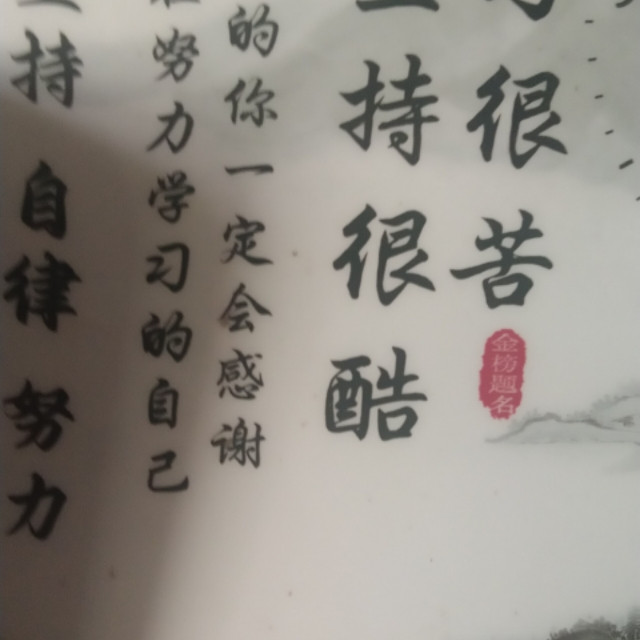 很苦
金榜题名
持很酷
的你一定会感谢
努力学习的自己
持 自律 努力